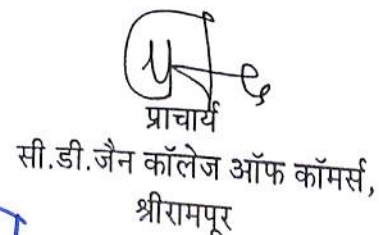 प्राचार्य
सी.डी.जैन कॉलेज ऑफ कॉमर्स,
श्रीरामपूर